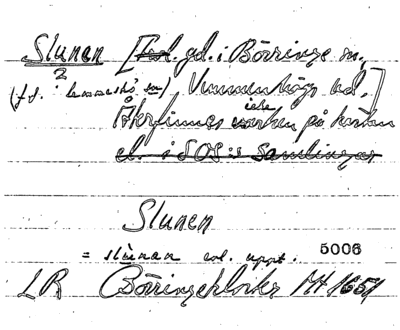 Slunen [Förl. gd. i Börringe sn,
2
(f.d. Lemmeströ sn), Vemmenhögs hd.]
Återfinnes icke på kartan
el. i SOS:s samlingar
Slunen
= slùnan enl. uppt. 5006
LR Börringekloster MH 1651